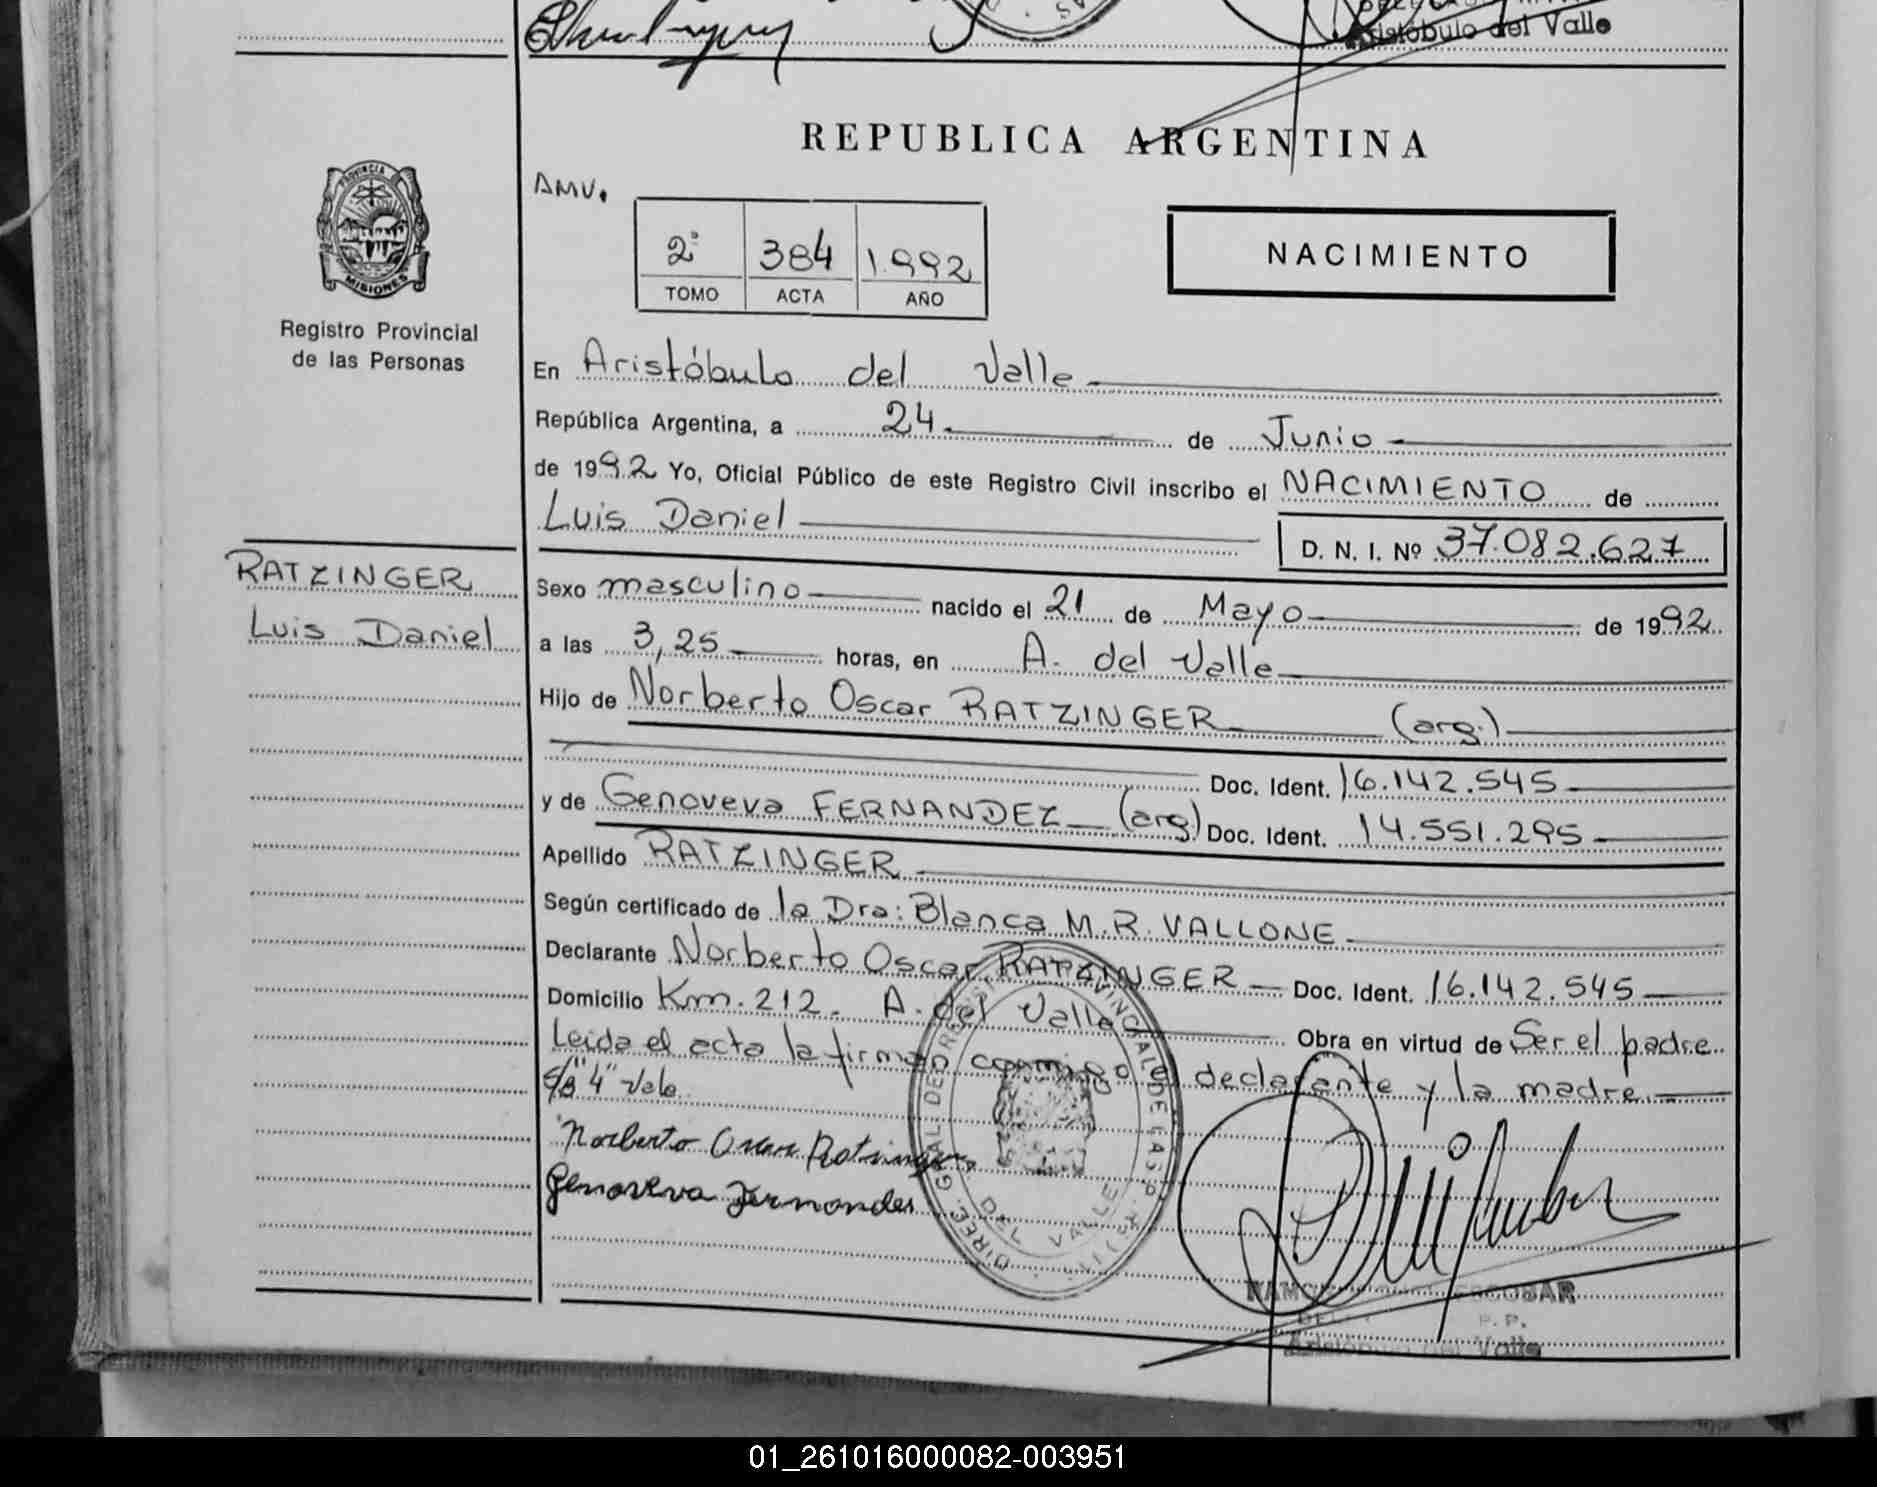 Aristóbulo del Valle
REPUBLICA ARGENTINA
PROVINCIA
MISIONES
Registro Provincial
de las Personas
AMV.
2º 384 1.992
TOMO ACTA AÑO
NACIMIENTO
En Aristóbulo del Valle
República Argentina, a 24 de Junio
de 1992 Yo, Oficial Público de este Registro Civil inscribo el NACIMIENTO de
Luis Daniel
D. N. I. Nº 37.082.627
RATZINGER
Luis Daniel
Sexo masculino nacido el 21 de Mayo de 1992
a las 3,25 horas, en A. del Valle
Hijo de Norberto Oscar RATZINGER (arg.)
Doc. Ident. 16.142.545
y de Genoveva FERNANDEZ (arg) Doc. Ident. 14.551.295
Apellido RATZINGER
Según certificado de la Dra: Blanca M.R. VALLONE
Declarante Norberto Oscar RATZINGER Doc. Ident. 16.142.545
Domicilio Km. 212. A. del Valle Obra en virtud de Ser el padre
Leida el acta la firman conmigo el declarante y la madre
"4" Vale
Norberto Oscar Ratzinger
Genoveva Fernandes
DEL VALLE
ESCOBAR
Aristóbulo del Valle
01_261016000082-003951